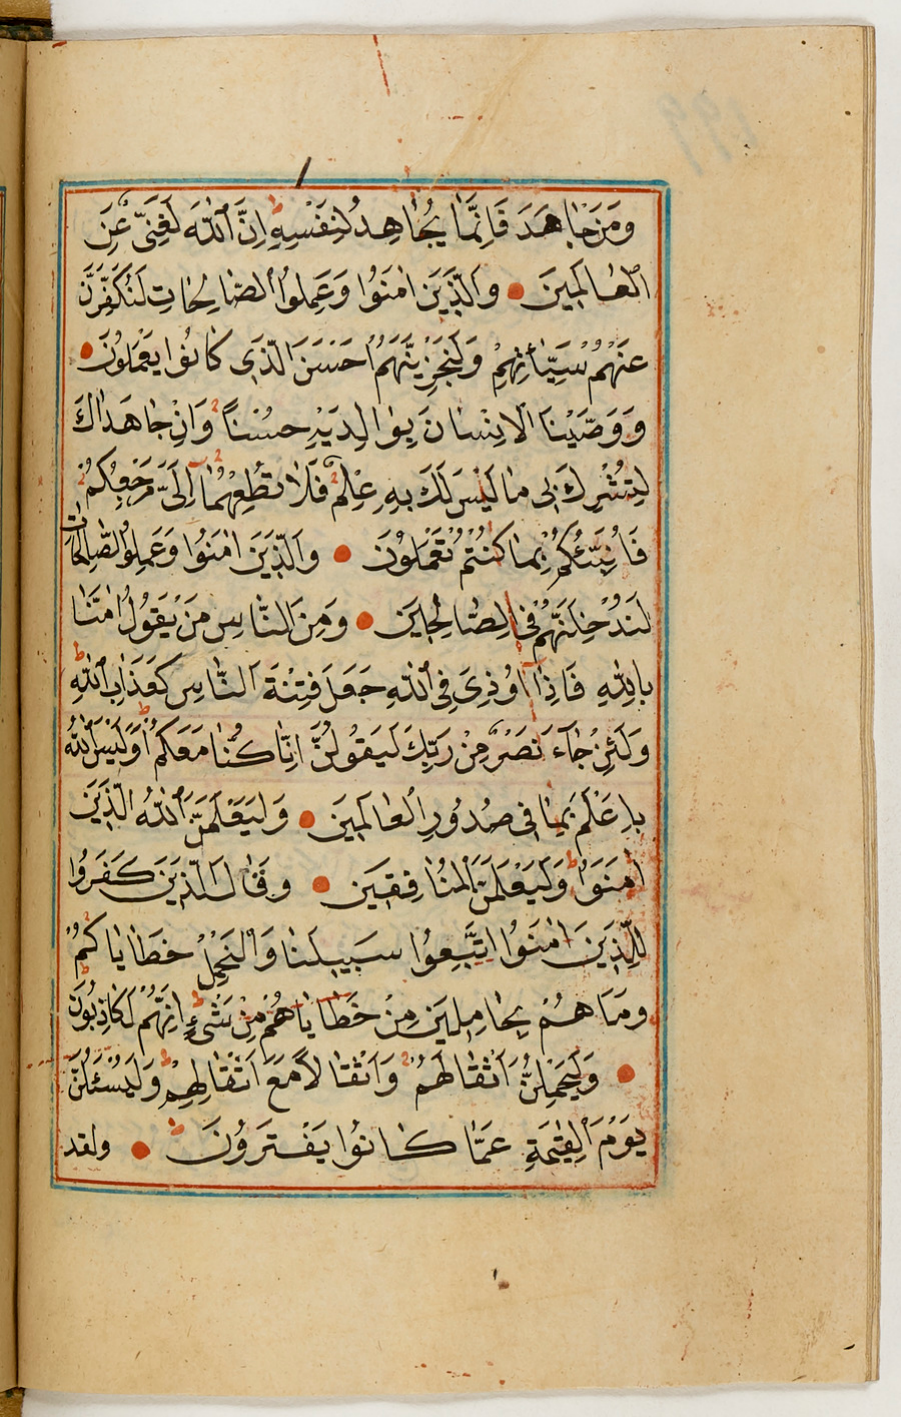 وَمَنْ جَاهَدَ فَاِنَّمَا يُجَاهِدُ لِنَفْسِهِ اِنَّ اللّٰهَ لَغَنِىٌّ عَنِ
الْعَالَمِينَ وَالَّذِينَ اٰمَنُوا وَعَمِلُوا الصَّالِحَاتِ لَنُكَفِّرَنَّ
عَنْهُمْ سَيِّئَاتِهِمْ وَلَنَجْزِيَنَّهُمْ اَحْسَنَ الَّذِى كَانُوا يَعْمَلُونَ
وَوَصَّيْنَا الْاِنْسَانَ بِوَالِدَيْهِ حُسْنًا وَاِنْ جَاهَدَاكَ
لِتُشْرِكَ بِى مَا لَيْسَ لَكَ بِهِ عِلْمٌ فَلَا تُطِعْهُمَا اِلَىَّ مَرْجِعُكُمْ
فَاُنَبِّئُكُمْ بِمَا كُنْتُمْ تَعْمَلُونَ وَالَّذِينَ اٰمَنُوا وَعَمِلُوا الصَّالِحَاتِ
لَنُدْخِلَنَّهُمْ فِى الصَّالِحِينَ وَمِنَ النَّاسِ مَنْ يَقُولُ اٰمَنَّا
بِاللّٰهِ فَاِذَا اُوذِىَ فِى اللّٰهِ جَعَلَ فِتْنَةَ النَّاسِ كَعَذَابِ اللّٰهِ
وَلَئِنْ جَاءَ نَصْرٌ مِنْ رَبِّكَ لَيَقُولُنَّ اِنَّا كُنَّا مَعَكُمْ اَوَلَيْسَ اللّٰهُ
بِاَعْلَمَ بِمَا فِى صُدُورِ الْعَالَمِينَ وَلَيَعْلَمَنَّ اللّٰهُ الَّذِينَ
اٰمَنُوا وَلَيَعْلَمَنَّ الْمُنَافِقِينَ وَقَالَ الَّذِينَ كَفَرُوا
لِلَّذِينَ اٰمَنُوا اتَّبِعُوا سَبِيلَنَا وَلْنَحْمِلْ خَطَايَاكُمْ
وَمَا هُمْ بِحَامِلِينَ مِنْ خَطَايَاهُمْ مِنْ شَىْءٍ اِنَّهُمْ لَكَاذِبُونَ
وَلَيَحْمِلُنَّ اَثْقَالَهُمْ وَاَثْقَالًا مَعَ اَثْقَالِهِمْ وَلَيُسْئَلُنَّ
يَوْمَ الْقِيٰمَةِ عَمَّا كَانُوا يَفْتَرُونَ ولقد